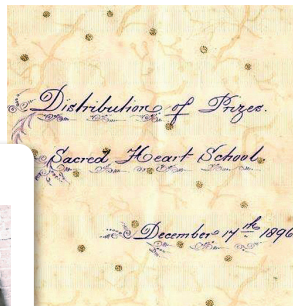 Distribution of Prizes.
Sacred Heart School,
December 17th 1896